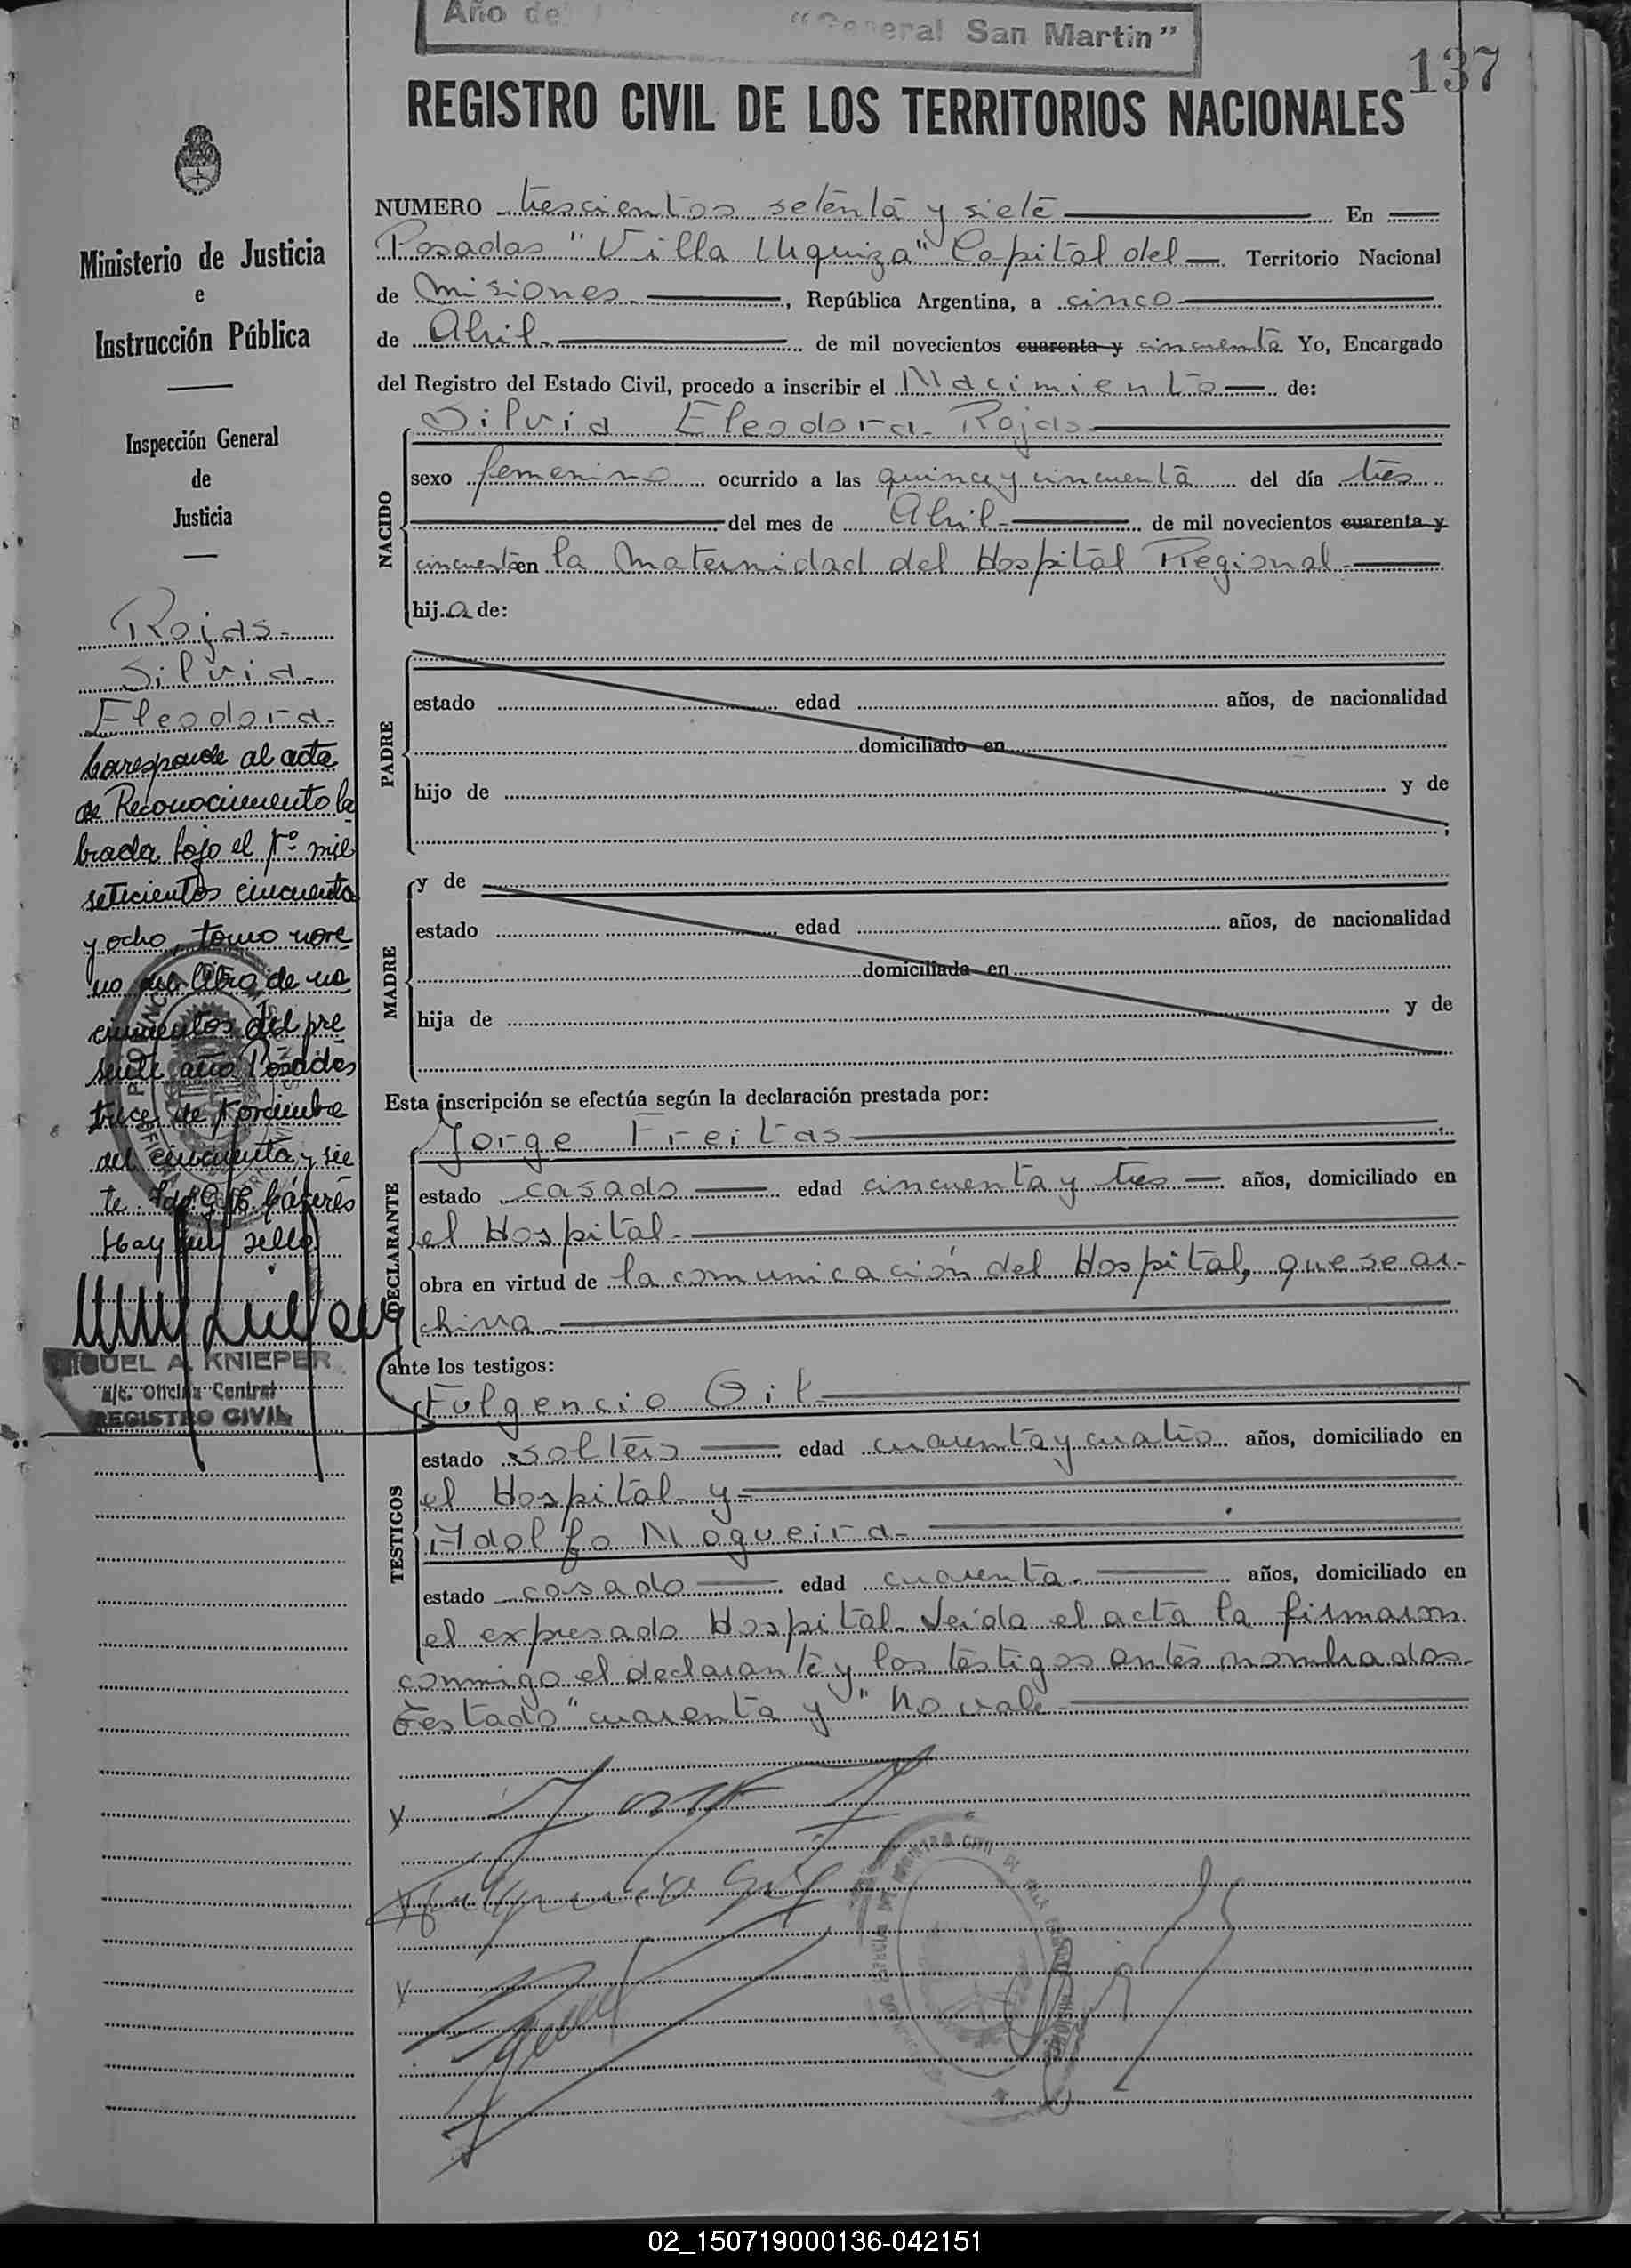 Año de "General San Martin"
137
REGISTRO CIVIL DE LOS TERRITORIOS NACIONALES
Ministerio de Justicia
e
Instrucción Pública
Inspección General
de
Justicia
Rojas
Silvia
Eleodora
Corresponde al acta
de Reconocimiento la
brada bajo el Nº mil
seticientos cincuenta
y ocho, tomo nove
no del libro de na
cimientos del pre
sente año Posadas
trece de Noviembre
del cincuenta y sie
te. Fdo. Cáceres
Hay un sello
MIGUEL A. KNIEPER
a/c. Oficina Central
REGISTRO CIVIL
NUMERO trescientos setenta y siete En
Posadas "Villa Urquiza" Capital del Territorio Nacional
de Misiones, República Argentina, a cinco
de Abril de mil novecientos cuarenta y cincuenta Yo, Encargado
del Registro del Estado Civil, procedo a inscribir el Nacimiento de:
NACIDO
Silvia Eleodora Rojas
sexo femenino ocurrido a las quince y cincuenta del día tres
del mes de Abril de mil novecientos cuarenta y
cincuenta en la Maternidad del Hospital Regional
hija de:
PADRE
estado edad años, de nacionalidad
domiciliado en
hijo de y de
;
MADRE
y de
estado edad años, de nacionalidad
domiciliada en
hija de y de
Esta inscripción se efectúa según la declaración prestada por:
DECLARANTE
Jorge Freitas
estado casado edad cincuenta y tres años, domiciliado en
el Hospital
obra en virtud de la comunicación del Hospital, que se ar-
chiva
ante los testigos:
TESTIGOS
Fulgencio Gil
estado soltero edad cuarenta y cuatro años, domiciliado en
el Hospital y
Adolfo Nogueira
estado casado edad cuarenta años, domiciliado en
el expresado Hospital. Leída el acta la firmaron
conmigo el declarante y los testigos antes nombrados.
Testado "cuarenta y" No vale
Fulgencio Gil
02_150719000136-042151